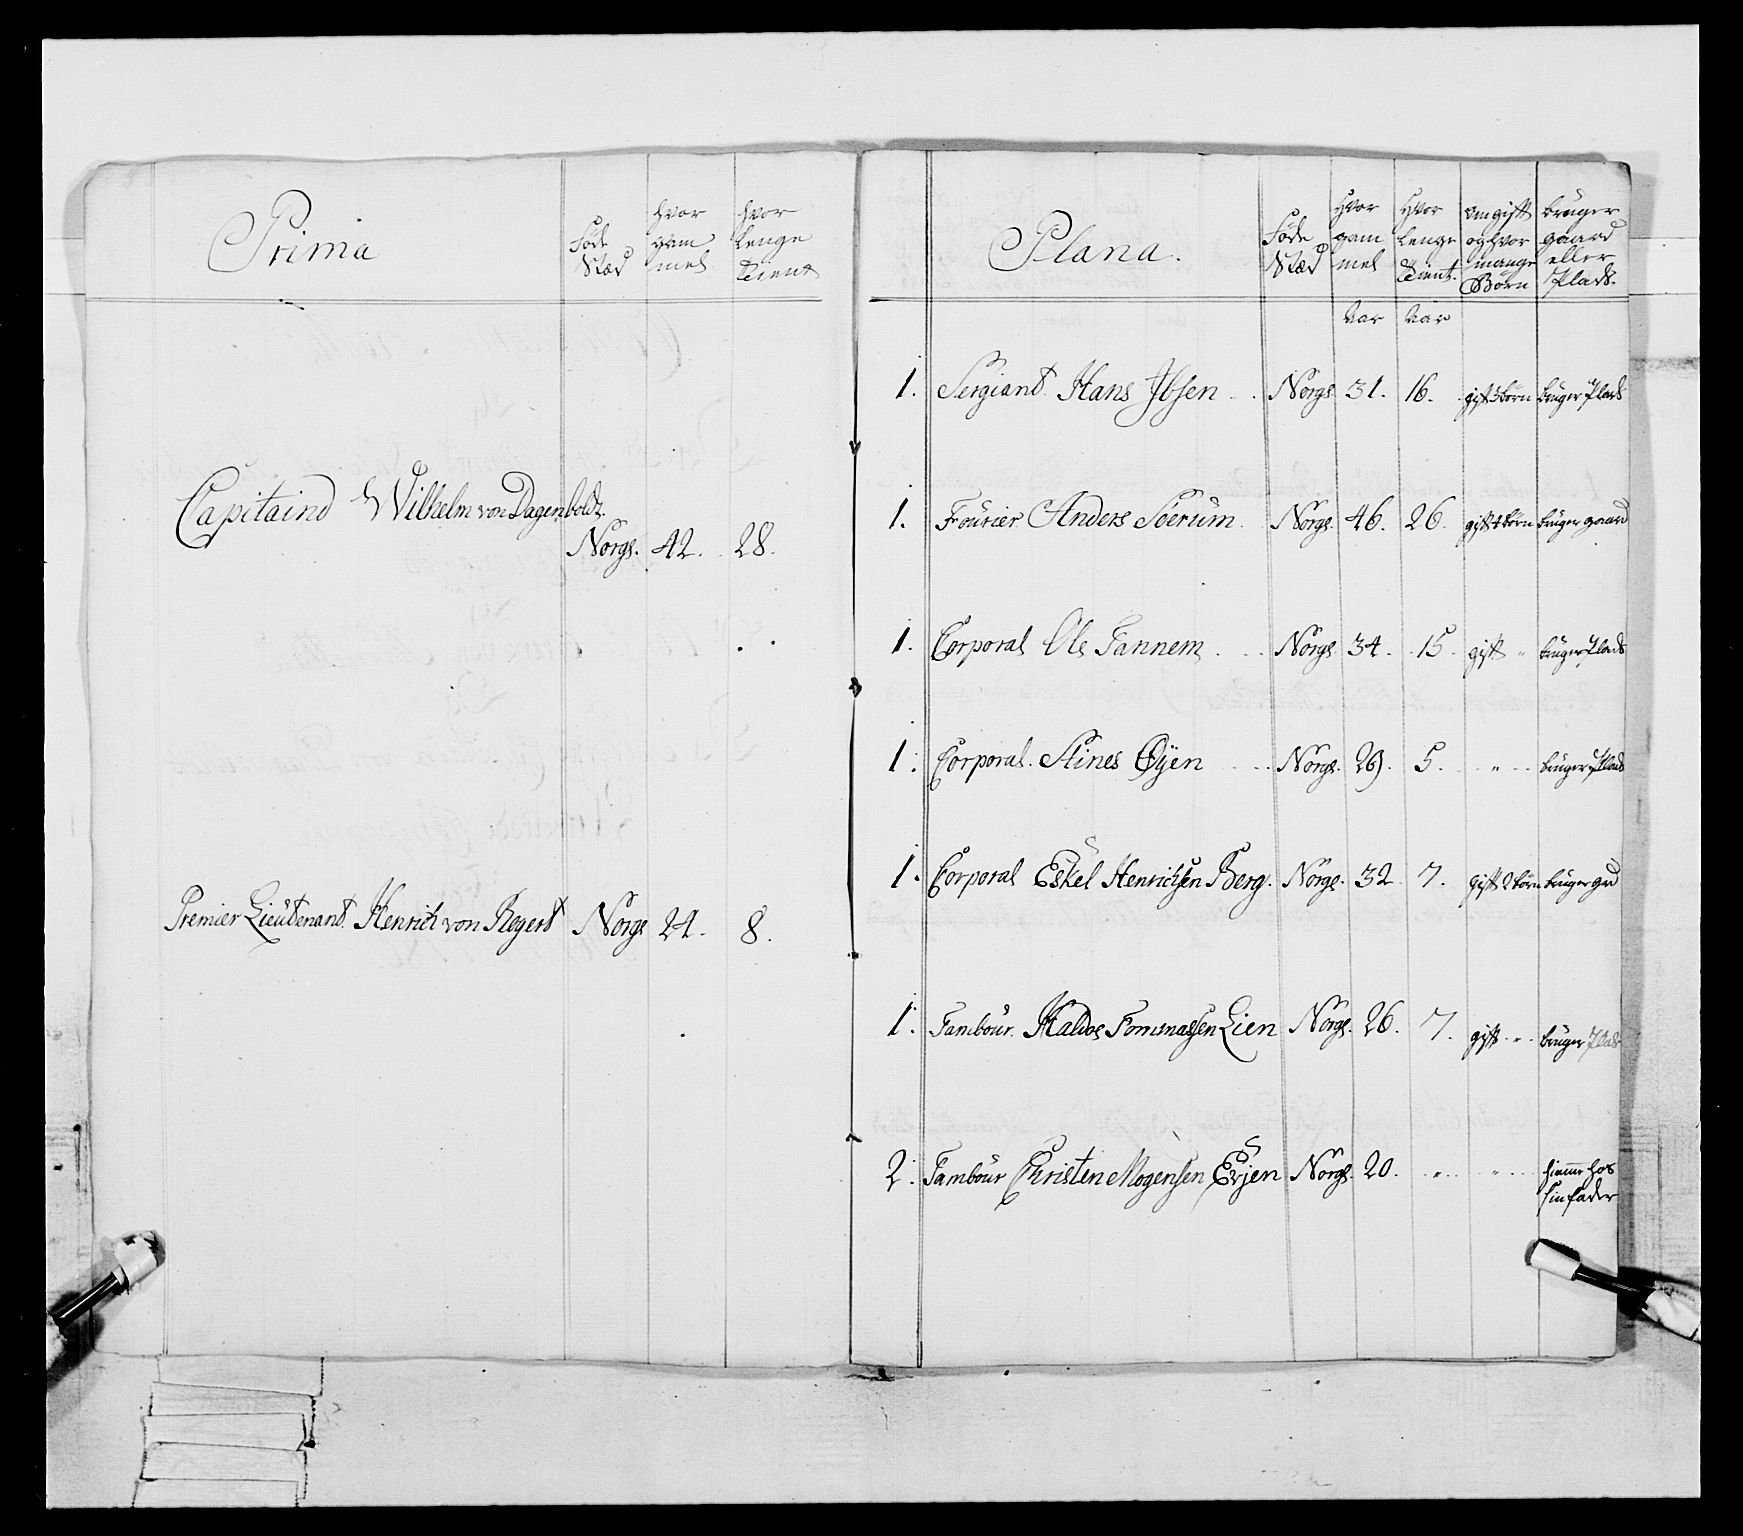 Prima
Føde Stæd
hvor gam mel
hvor lenge Tient
Capitaind Wilhelm von Dagenboldt. Norge. 42. 28.
Premier Lieutenant Henrich von Regert Norge 24. 8.
Plana.
Føde Stæd
Hvor gam mel
Hvor lenge Tient.
om gift og hvor mange Børn
bruger gaard eller Plads.
Aar Aar
1. Sergiant Hans Ibsen Norge 31. 16. gift 3 børn bruger Plads
1. Fourier Anders Soerum Norge. 46. 26. gift 4 børn bruger gaard
1. Corporal Ole Fannem Norge 34. 15. gift " bruger Plads
1. Corporal. Stines Øyen Norge. 29. 5. " bruger Plads
1. Corporal Eskel Henrichsen Berg. Norge. 32. 7. gift 2 børn bruger grd
1. Tambour. Haldos Tommassen Lien Norge. 26. 7. gift " bruger Plads
2. Tambour Christen Mogensen Erjen Norge. 20. " " hiemme hos
sin fader